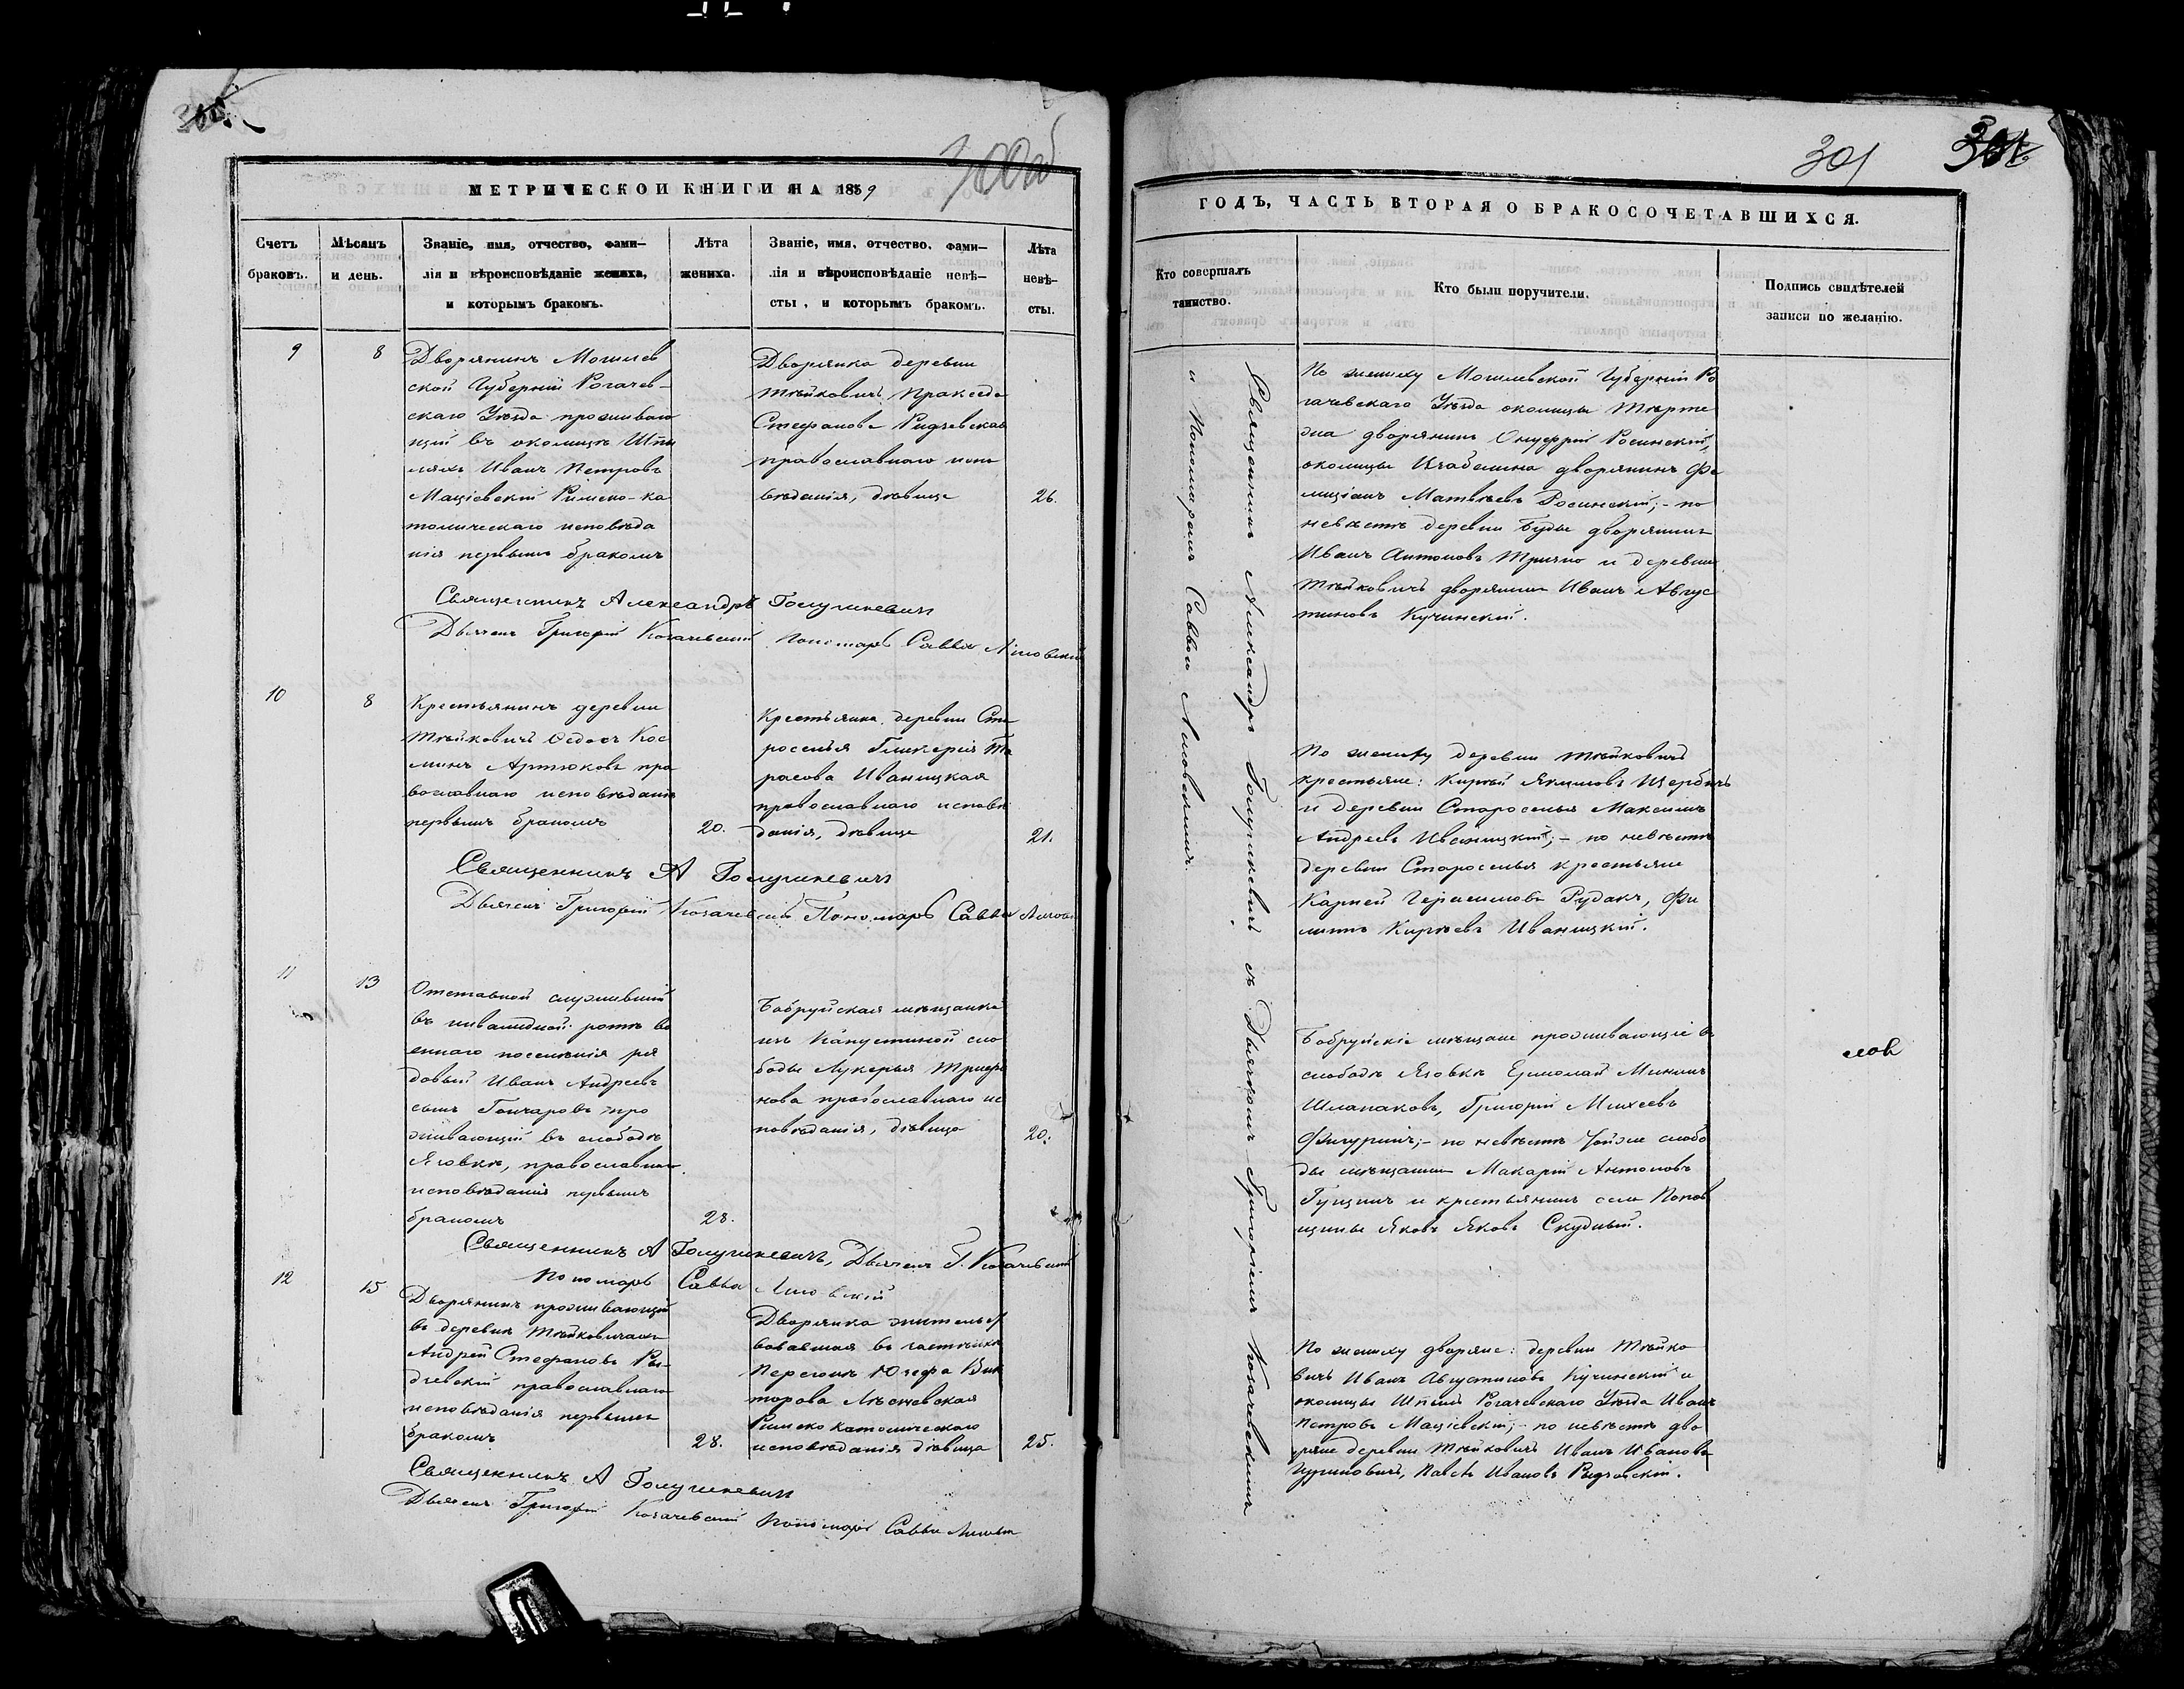 300об
МЕТРИЧЕСКОИ КНИГИ НА 1859
Счетъ
браковъ.
Мѣсяцъ
и день.
Званіе, имя, отчество, фами-
лія и вѣроисповѣданіе жениха,
и которымъ бракомъ.
Лѣта
жениха.
Званіе, имя, отчество, фами-
лія и вѣроисповѣданіе невѣ-
сты, и которымъ бракомъ.
Лѣта
невѣ-
сты.
9
8
Дворянинъ Могилев
ской Губерніи Рогачев-
скаго Уѣзда проживаю
щій въ околицѣ Шпи
ляхъ Иванъ Петровъ
Маціевскій Римско-ка
толическаго исповѣда
нія первымъ бракомъ
Дворянка деревни
Тѣйковичъ Пракседа
Стефанова Ридзевская
православнаго испо
вѣданія, дѣвица
26.
Священникъ Александръ Голушкевичъ
Дьячекъ Григорій Козачевскій Пономарь Савва Лисовскій
10
8
Крестьянинъ деревни
Тѣйковичъ Ѳедосъ Кос
минъ Артюковъ пра
вославнаго исповѣданія
первымъ бракомъ
20.
Крестьянка деревни Ста
роселья Гликерія Та
расова Иваницкая
православнаго исповѣ
данія, дѣвица
21.
Священникъ А Голушкевичъ
Дьячекъ Григорій Козачевскій Пономарь Савва Лисовс
11
13
Отставной служившій
въ инвалидной ротѣ во
еннаго поселенія ря
довый Иванъ Андреевъ
сынъ Гончаровъ про
живающій въ слободѣ
Яловкѣ, православнаго
исповѣданія первымъ
бракомъ
28.
Бобруйская мѣщанка
изъ Капустиной сло
боды Лукерья Трифо
нова православнаго ис
повѣданія, дѣвица
20.
Священникъ А Голушкевичъ, Дьячекъ Г. Козачевскій
Пономарь Савва Лисовскій
12
15
Дворянинъ проживающій
въ деревнѣ Тѣйковичахъ
Андрей Стефановъ Ры-
дзевскій православнаго
исповѣданія первымъ
бракомъ
28.
Дворянка жительст
вовавшая въ застѣнкѣ
Юзефа Вик
торова
Римско католическаго
исповѣданія дѣвица
25.
Священникъ А Голушкевичъ
Дьячекъ Григорій Козачевскій Пономарь Савва Лисовск
301
ГОДЪ, ЧАСТЬ ВТОРАЯ О БРАКОСОЧЕТАВШИХСЯ.
Кто совершалъ
таинство.
Кто были поручители.
Подпись свидѣтелей
записи по желанію.
Священникъ Александръ Голушкевичъ съ Дьячкомъ Григоріемъ Козачевскимъ
и Пономаремъ Саввою Лисовскимъ.
По жениху Могилевской Губерніи Ро
гачевскаго Уѣзда околицы
дворянинъ Онуфрій Росинскій,
околицы дворянинъ Фе
лиціанъ Матвѣевъ Росинскій; - по
невѣстѣ деревни Буды дворянинъ
Иванъ Антоновъ и деревни
Тѣйковичъ дворянинъ Иванъ Авгус
тиновъ Кучинскій.
По жениху деревни Тѣйковичъ
крестьяне: Кирѣй Якимовъ Щербичъ
и деревни Староселья Максимъ
Андреевъ Иваницкій; - по невѣстѣ
деревни Староселья крестьяне
Карпей Герасимовъ Рудакъ, Фи
липъ Кирѣевъ Иваницкій.
Бобруйскіе мѣщане проживающіе въ
слободѣ Яловкѣ Ермолай Мининъ
Шлапаковъ, Григорій Михеевъ
Фигуринъ; - по невѣстѣ тойже слобо
ды мѣщанинъ Макарій Антоновъ
Гущинъ и крестьянинъ села Попов
щины Яковъ Яковъ Скудный.
По жениху дворяне: деревни Тѣйко
вичъ Иванъ Августиновъ Кучинскій и
околицы Шпилей Рогачевскаго Уѣзда Иванъ
Петровъ Маціевскій; - по невѣстѣ дво
ряне деревни Тѣйковичъ Иванъ Ивановъ
Павелъ Ивановъ Рыдзевскій.